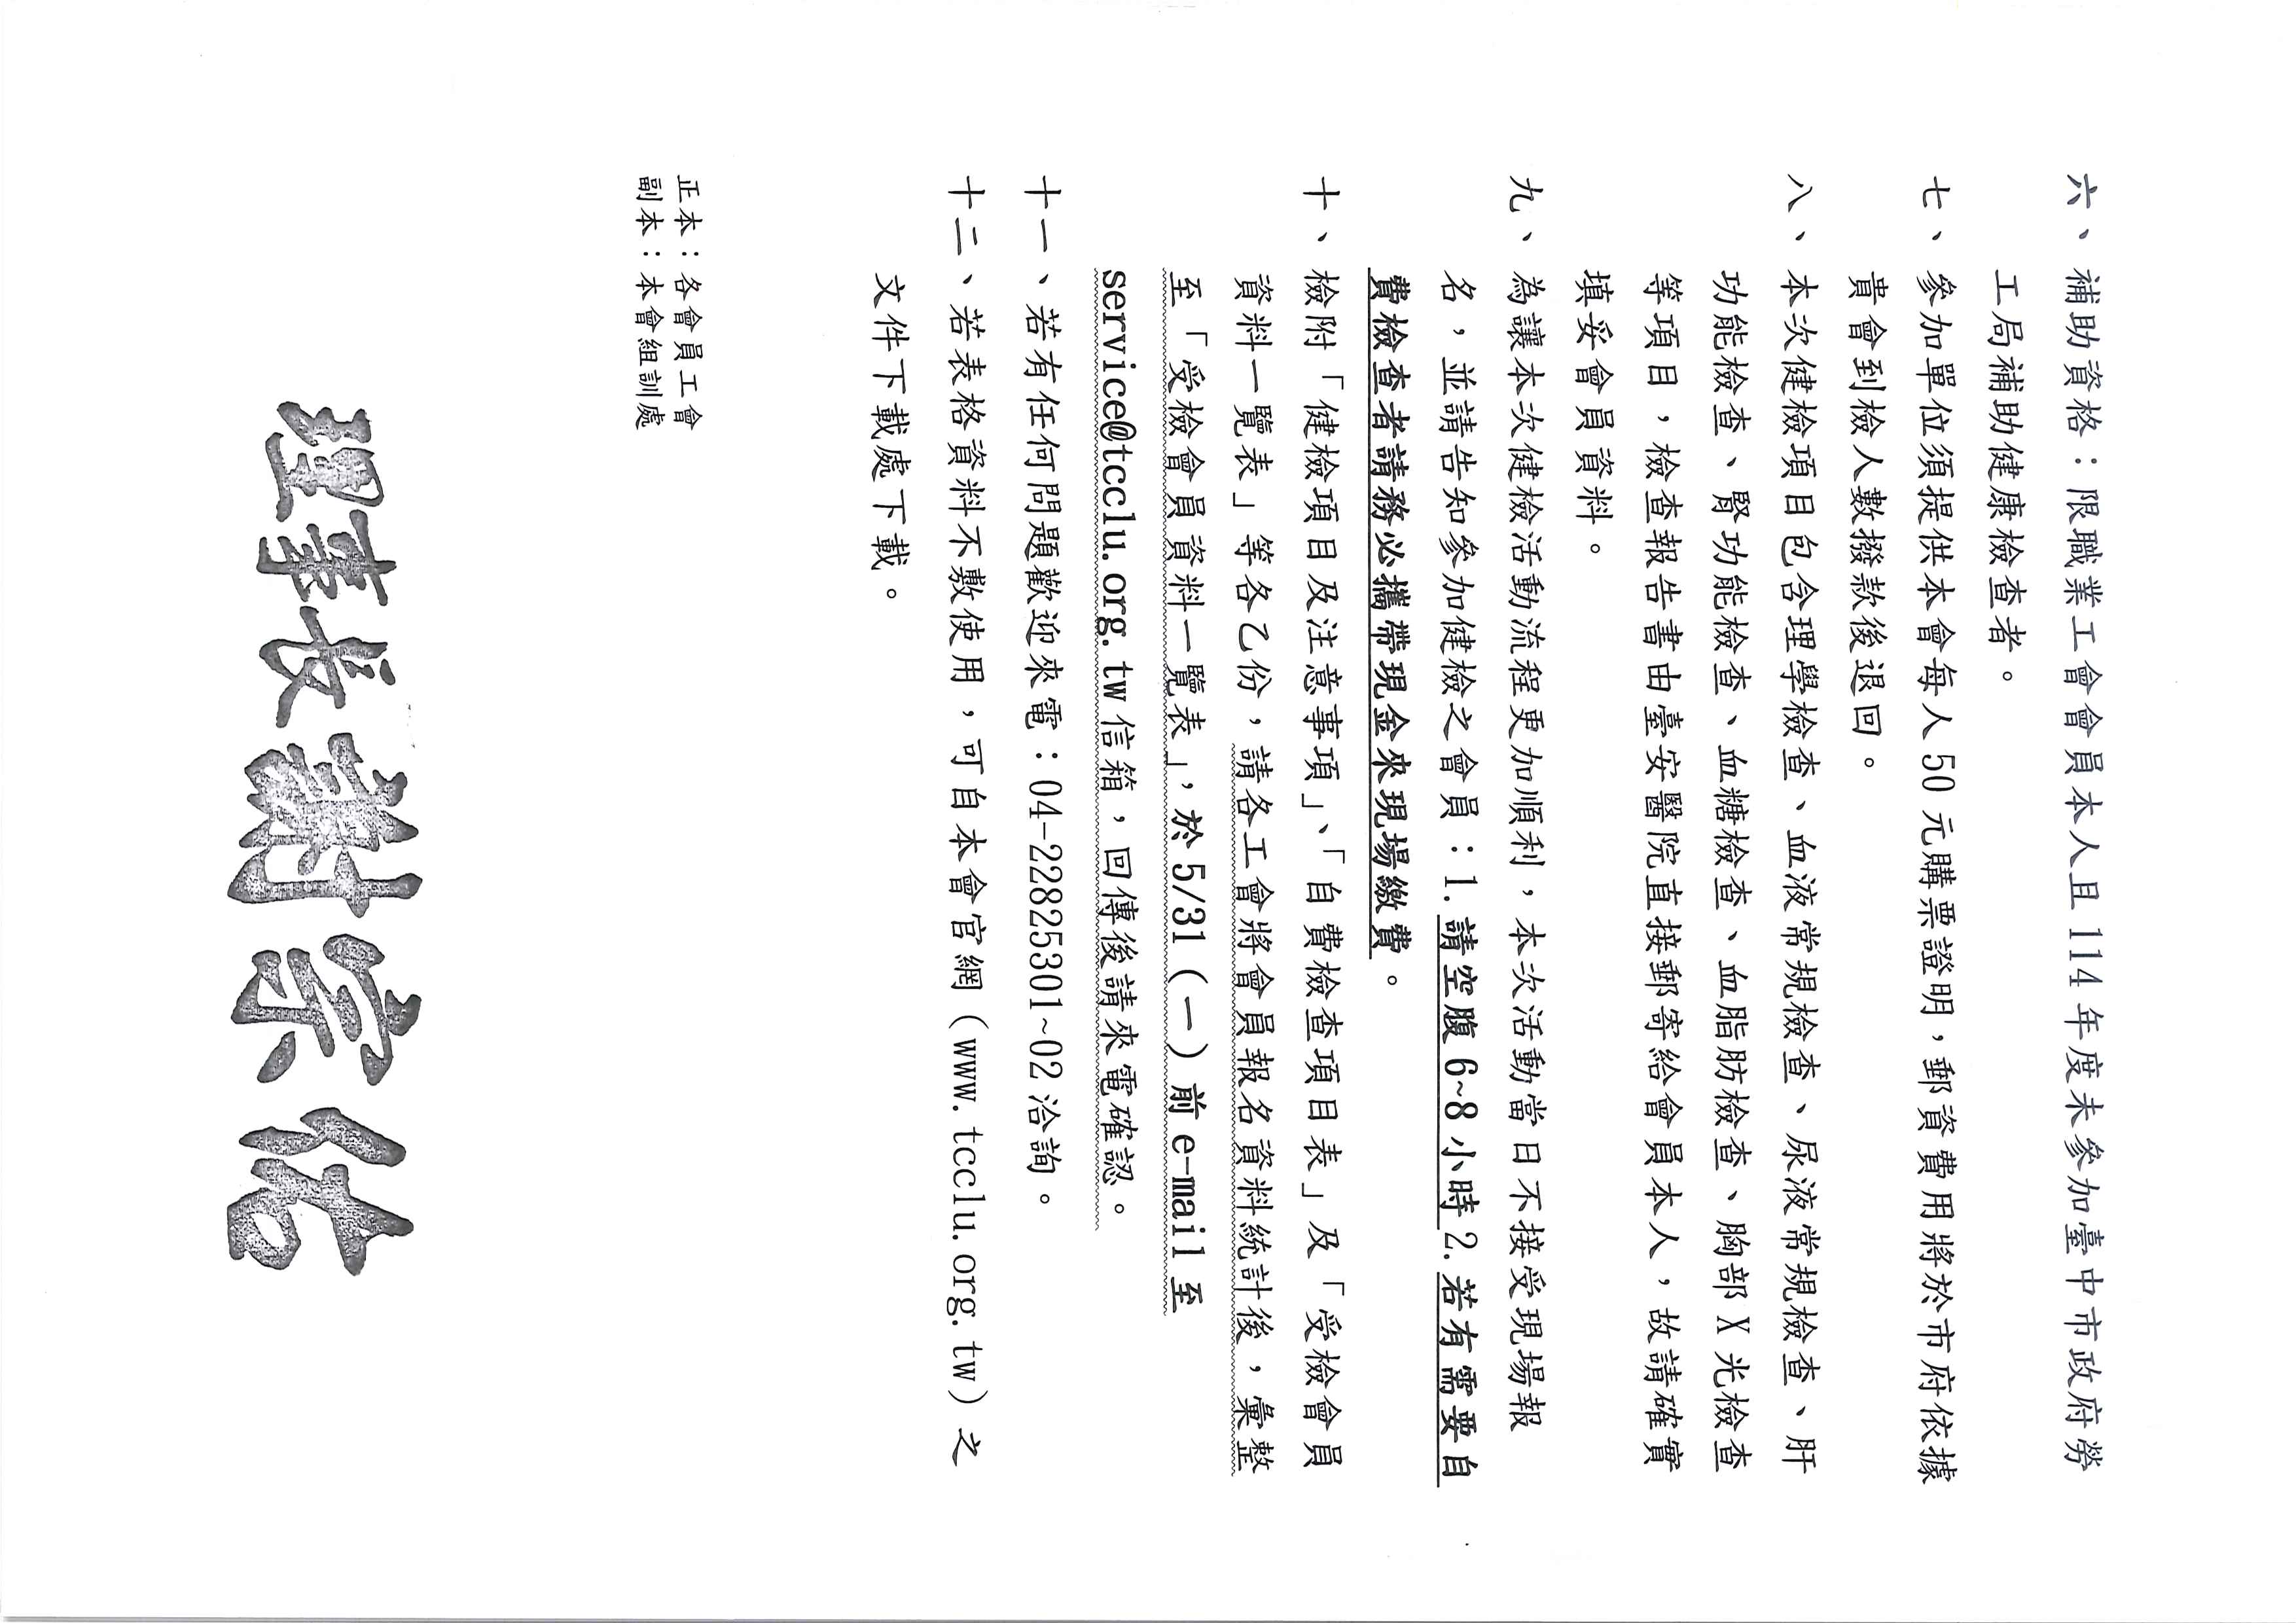 六、補助資格：限職業工會會員本人且114年度未參加臺中市政府勞
工局補助健康檢查者。
七、參加單位須提供本會每人50元購票證明，郵資費用將於市府依據
貴會到檢人數撥款後退回。
八、本次健檢項目包含理學檢查、血液常規檢查、尿液常規檢查、肝
功能檢查、腎功能檢查、血糖檢查、血脂肪檢查、胸部X光檢查
等項目，檢查報告書由臺安醫院直接郵寄給會員本人，故請確實
填妥會員資料。
九、為讓本次健檢活動流程更加順利，本次活動當日不接受現場報
名，並請告知參加健檢之會員：1.請空腹6~8小時2.若有需要自
費檢查者請務必攜帶現金來現場繳費。
十、檢附「健檢項目及注意事項」、「自費檢查項目表」及「受檢會員
資料一覽表」等各乙份，請各工會將會員報名資料統計後，彙整
至「受檢會員資料一覽表」，於5/31(一)前e-mail至
service@tcclu.org.tw信箱，回傳後請來電確認。
十一、若有任何問題歡迎來電：04-22825301~02洽詢。
十二、若表格資料不敷使用，可自本會官網(www.tcclu.org.tw)之
文件下載處下載。
正本：各會員工會
副本：本會組訓處
理事長謝宗佑